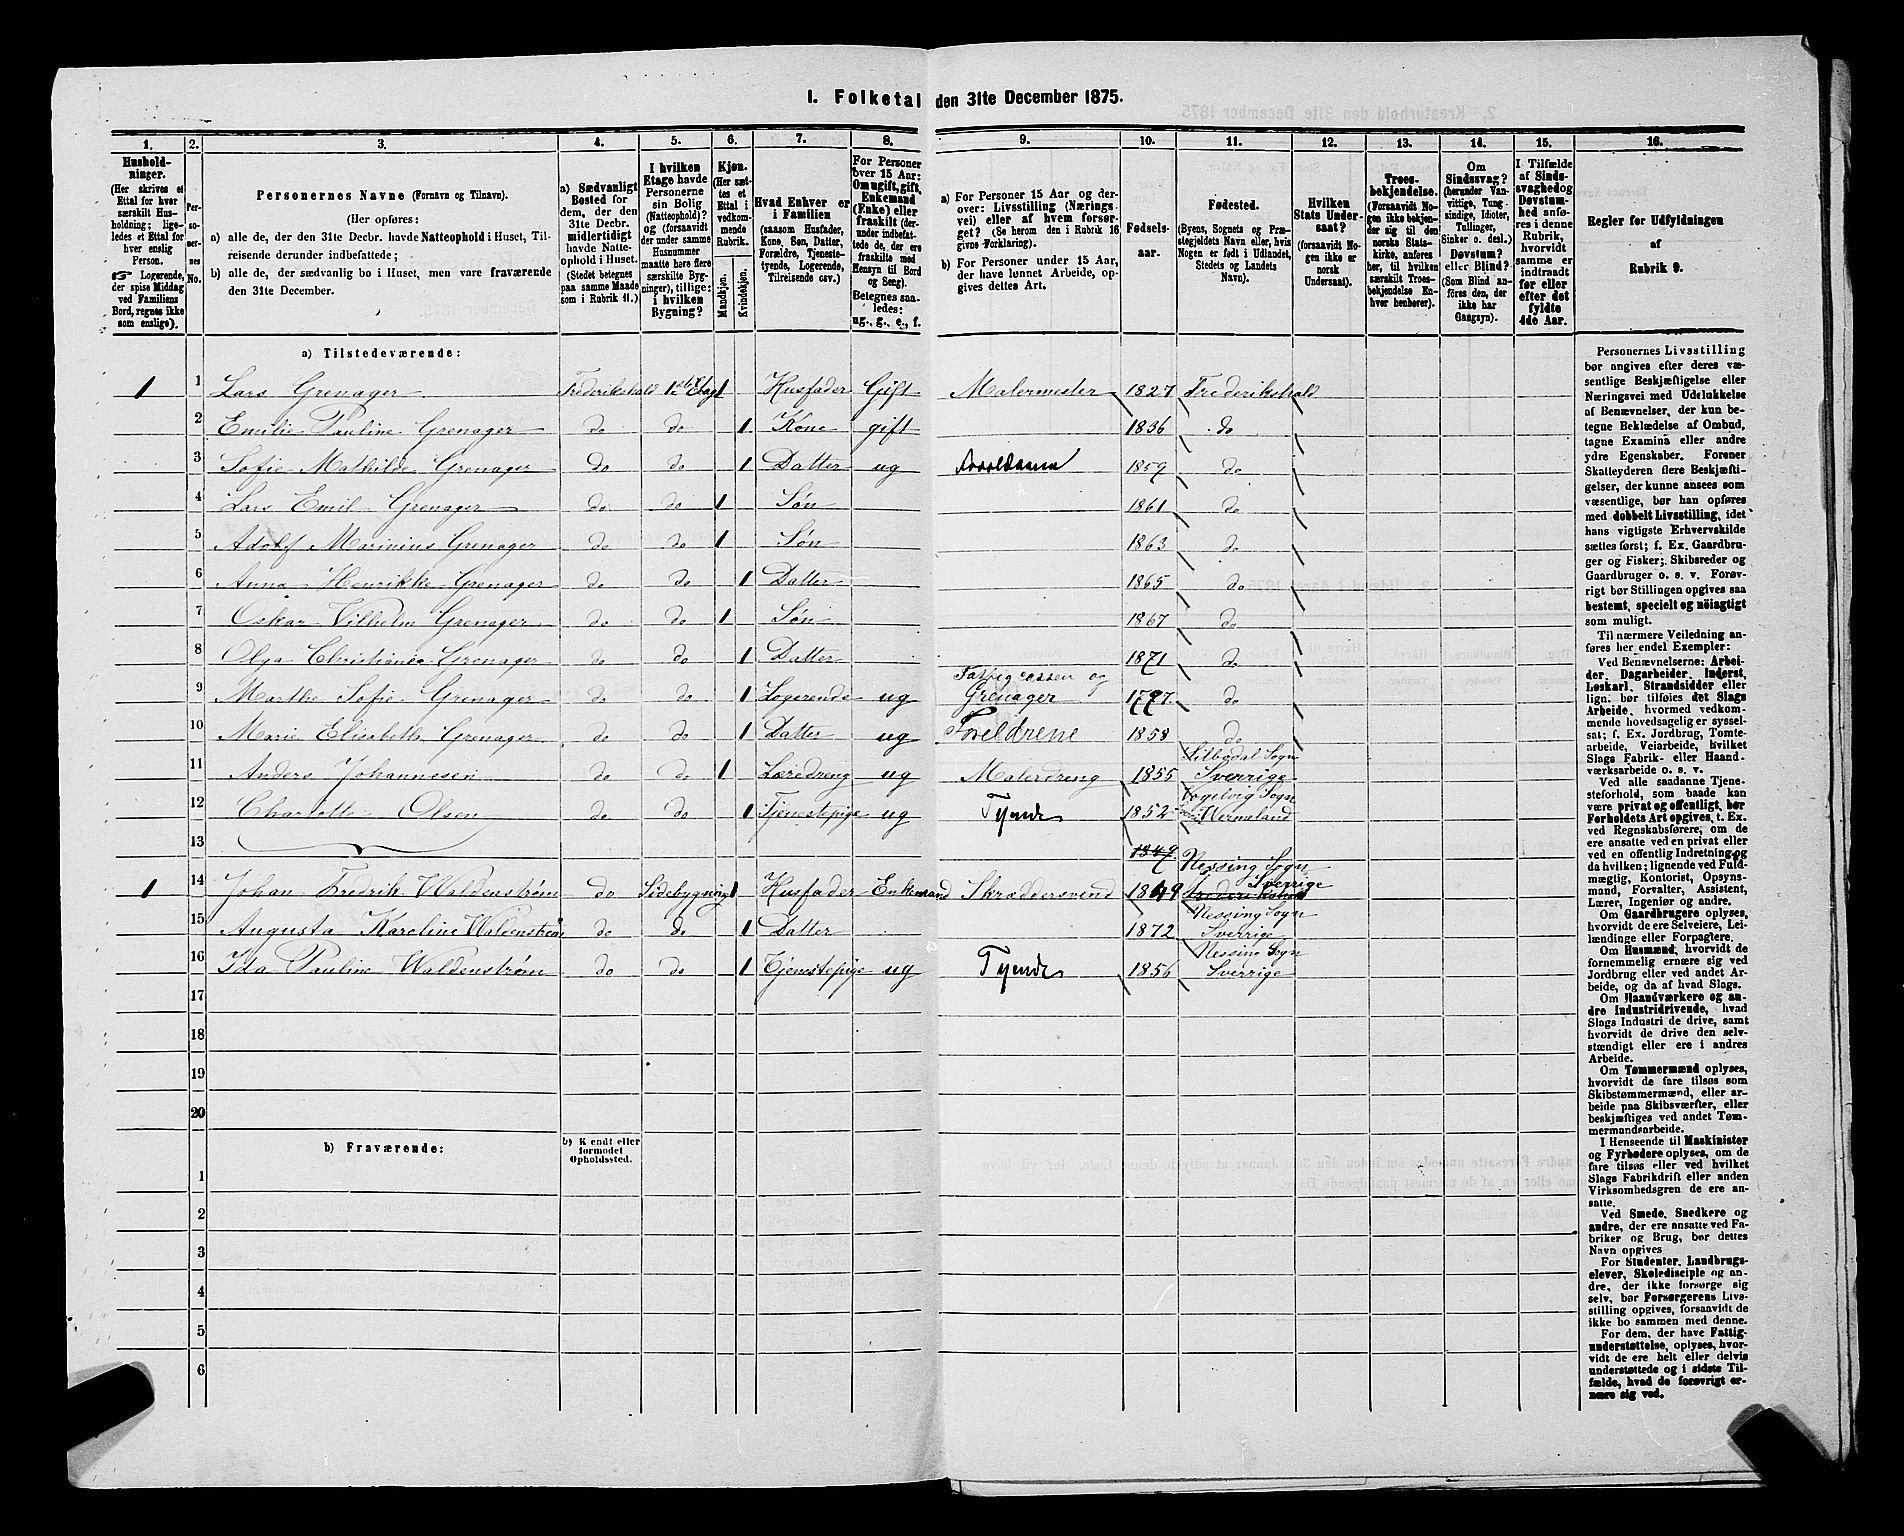 1. Folketal den 31te December 1875.
1. 2. 3. 4. 5. 6. 7. 8. 9. 10. 11. 12. 13. 14. 15. 16.
Hushold-
ninger.
(Her skrives et
Ettal for hver
særskilt Hus-
holdning; lige-
ledes et Ettal for
hver enslig
Person.
☞ Logerende,
der spise Middag
ved Familiens
Bord, regnes ikke
som enslige).
Per-
so-
ner-
nes
No.
Personernes Navne (Fornavn og Tilnavn).
(Her opføres:
a) alle de, der den 31te Decbr. havde Natteophold i Huset, Til-
reisende derunder indbefattede;
b) alle de, der sædvanlig bo i Huset, men vare fraværende
den 31te December.
a) Sædvanligt
Bosted for
dem, der den
31te Decbr.
midlertidigt
havde Natte-
ophold i Huset.
(Stedet betegnes
paa samme Maade
som i Rubrik 11.)
I hvilken
Etage havde
Personerne
sin Bolig
(Natteophold)?
og (forsaavidt
der under samme
Husnummer
maatte høre flere
særskilte Byg-
ninger), tillige:
i hvilken
Bygning?
Kjøn.
(Her sæt-
tes et
Ettal i
vedkom-
mende
Rubrik.
Mandkjøn.
Kvindekjøn.
Hvad Enhver er
i Familien
(saasom Husfader,
Kone, Søn, Datter,
Forældre, Tjeneste-
tyende, Logerende,
Tilreisende osv.)
For Personer
over 15 Aar:
Om ugift, gift,
Enkemand
(Enke) eller
fraskilt (der-
under indbefat-
tede de, der ere
fraskilte med
Hensyn til Bord
og Seng).
Betegnes saa-
ledes:
ug., g., e., f.
a) For Personer 15 Aar og der-
over: Livsstilling (Nærings-
vei) eller af hvem forsør-
get? (Se herom den i Rubrik 16
givne Forklaring).
b) For Personer under 15 Aar,
der have lønnet Arbeide, op-
gives dettes Art.
Fødsels-
aar.
Fødested.
(Byens, Sognets og Præ-
stegjeldets Navn eller, hvis
Nogen er født i Udlandet,
Stedets og Landets
Navn).
Hvilken
Stats Under-
saat?
(forsaavidt No-
gen ikke er
norsk
Undersaat).
Troes-
bekjendelse.
(Forsaavidt No-
gen ikke bekjen-
der sig til den
norske Stats-
kirke, anføres
her, til hvilken
særskilt Troes-
bekjendelse En-
hver henhører).
Om
Sindssvag?
(herunder Van-
vittige, Tung-
sindige, Idioter,
Tullinger,
Sinker o. desl.)
Døvstum?
eller Blind?
(Som Blind an-
føres den, der
ikke har
Gangsyn).
I Tilfælde
af Sinds-
svaghed og
Døvstum-
hed anfø-
res i denne
Rubrik,
hvorvidt
samme er
indtraadt
før eller
efter det
fyldte
4de Aar.
Regler for Udfyldningen
af
Rubrik 9.
a) Tilstedeværende:
1 1 Lars Grenager Frederikshald 1ste Etage 1 Husfader Gift Malermester 1827 Frederikshald
2 Emilie Pauline Grenager do do 1 Kone gift 1836 do
3 Sofie Mathilde Grenager do do 1 Datter ug 1859 do
4 Lars Emil Grenager do do 1 Søn 1861 do
5 Adolf Marinius Grenager do do 1 Søn 1863 do
6 Anna Henrikke Grenager do do 1 Datter 1865 do
7 Oskar Vilhelm Grenager do do 1 Søn 1867 do
8 Olga Christianea Grenager do do 1 Datter 1871 do
9 Marthe Sofie Grenager do do 1 Logerende ug Fattigcassen og Grenager 1797 do
10 Marie Elisabeth Grenager do do 1 Datter ug Foreldrene 1858 do
11 Anders Johannesen do do 1 Læredreng ug Malerdreng 1855 Silbodal Sogn Sverrige
12 Charlotte Olsen do do 1 Tjenestepige ug Tyende 1852 Sogn Wermeland
13 1849 Nessing Sogn
1 14 Johan Fredrik Waldenstrøm do Sidebygning 1 Husfader Enkemand Skræddersvend 1849 Sverrige Frederikshald
15 Augusta Karoline Waldenstrøm do do 1 Datter 1872 Nessing Sogn Sverrige
16 Ida Pauline Waldenstrøm do do 1 Tjenestepige ug Tyende 1856 Nessing Sogn Sverrige
17
18
19
20
b) Fraværende:
b) Kjendt eller
formodet
Opholdssted.
1
2
3
4
5
6
Personernes Livsstilling
bør angives efter deres væ-
sentlige Beskjæftigelse eller
Næringsvei med Udelukkelse
af Benævnelser, der kun be-
tegne Beklædelse af Ombud,
tagne Examina eller andre
ydre Egenskaber. Forener
Skatteyderen flere Beskjæfti-
gelser, der kunne ansees som
væsentlige, bør han opføres
med dobbelt Livsstilling, idet
hans vigtigste Erhvervskilde
sættes først; f. Ex. Gaardbru-
ger og Fisker; Skibsreder og
Gaardbruger o. s. v. Forøv-
rigt bør Stillingen opgives saa
bestemt, specielt og nöiagtigt
som muligt.
Til nærmere Veiledning an-
føres her endel Exempler:
Ved Benævnelserne: Arbei-
der, Dagarbeider, Inderst,
Løskarl, Strandsidder eller
lign. bør tilføies det Slags
Arbeide, hvormed vedkom-
mende hovedsagelig er syssel-
sat; f. Ex. Jordbrug, Tomte-
arbeide, Veiarbeide, hvilket
Slags Fabrik- eller Haand-
værksarbeide o. s. v.
Ved alle saadanne Tjene-
steforhold, som baade kan
være privat og offentligt, bør
Forholdets Art opgives, t. Ex.
ved Regnskabsførere, om de
ere ansatte ved en privat eller
ved en offentlig Indretning og
da hvilken; lignende ved Fuld-
mægtig, Kontorist, Opsyns-
mand, Forvalter, Assistent,
Lærer, Ingeniør og andre.
Om Gaardbrugere oplyses,
hvorvidt de ere Selveiere, Lei-
lændinge eller Forpagtere.
Om Husmænd, hvorvidt de
fornemmelig ernære sig ved
Jordbrug eller ved andet Ar-
beide, og da af hvad Slags.
Om Haandværkere og an-
dre Industridrivende, hvad
Slags Industri de drive, samt
hvorvidt de drive den selv-
stændigt eller ere i andres
Arbeide.
Om Tømmermænd oplyses,
hvorvidt de fare tilsøs som
Skibstømmermænd, eller ar-
beide paa Skibsværfter, eller
beskjæftiges ved andet Tøm-
mermandsarbeide.
I Henseende til Maskinister
og Fyrbødere oplyses, om de
fare tilsøs eller ved hvilket
Slags Fabrikdrift eller anden
Virksomhedsgren de ere an-
satte.
Ved Smede, Snedkere og
andre, der ere ansatte ved Fa-
briker og Brug, bør dettes
Navn opgives
For Studenter, Landbrugs-
elever, Skoledisciple og an-
dre, der ikke forsørge sig
selv, bør Forsørgerens Livs-
stilling opgives, forsaavidt de
ikke bo sammen med denne.
For dem, der have Fattig-
understøttelse, oplyses, hvor-
vidt de ere helt eller delvis
understøttede og i sidste Til-
fælde, hvad de forøvrigt er-
nære sig ved.